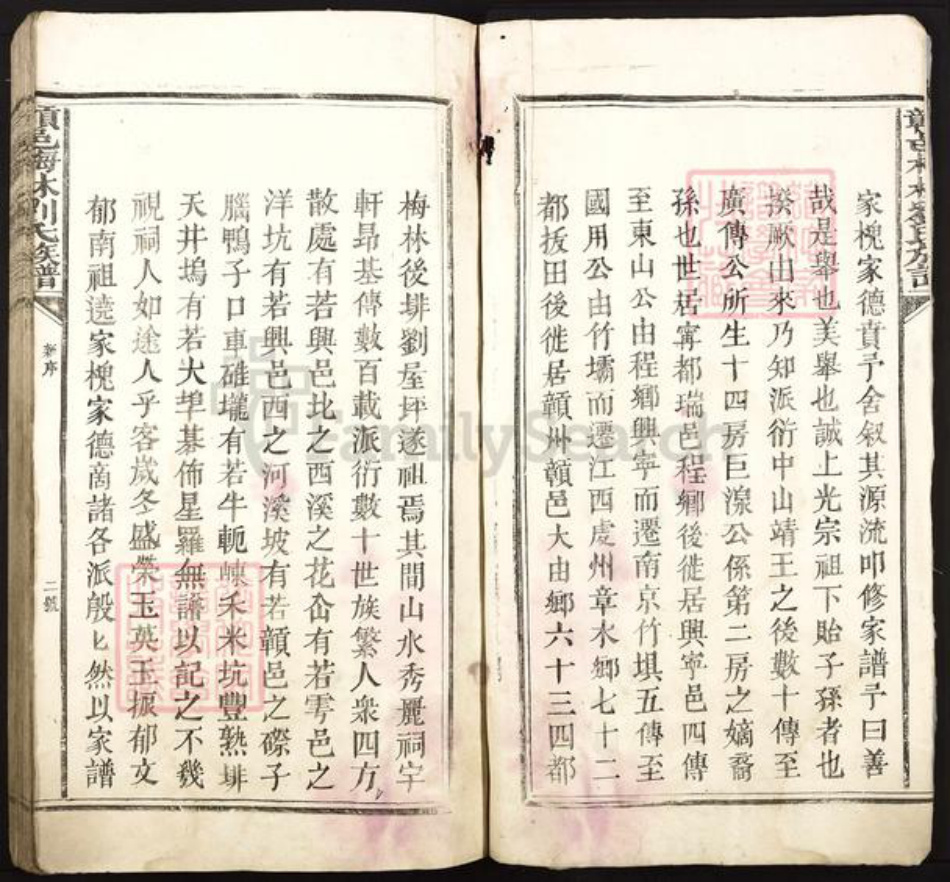 家槐家德賁予舍敘其源流叩修家譜予曰善
哉是舉也美舉也誠上光宗祖下貽子孫者也
揆厥由來乃知派衍中山靖王之後數十傳至
廣傳公所生十四房巨湶公係第二房之嫡裔
孫也世居寧都瑞邑程鄉後徙居興寧邑四傳
至東山公由程鄉興寧而遷南京竹埧五傳至
國用公由竹壩而遷江西虔州章水鄉七十二
都拔田後徙居贛州贛邑大由鄉六十三四都
贛邑梅林劉氏族譜
新序
二號
梅林後排劉屋坪遂祖焉其間山水秀麗祠宇
軒昂基傳數百載派衍數十世族繁人衆四方
散處有若興邑北之西溪之花仚有若雩邑之
洋坑有若興邑西之河溪坡有若贛邑之磜子
腦鴨子口車碓壠有若牛軛崠禾米坑豐熟排
天井塢有若大埠棊佈星羅無譜以記之不幾
視祠人如途人乎客歲冬盛榮玉英玉振郁文
郁南祖遶家槐家德啇諸各派殷匕然以家譜
FamilySearch